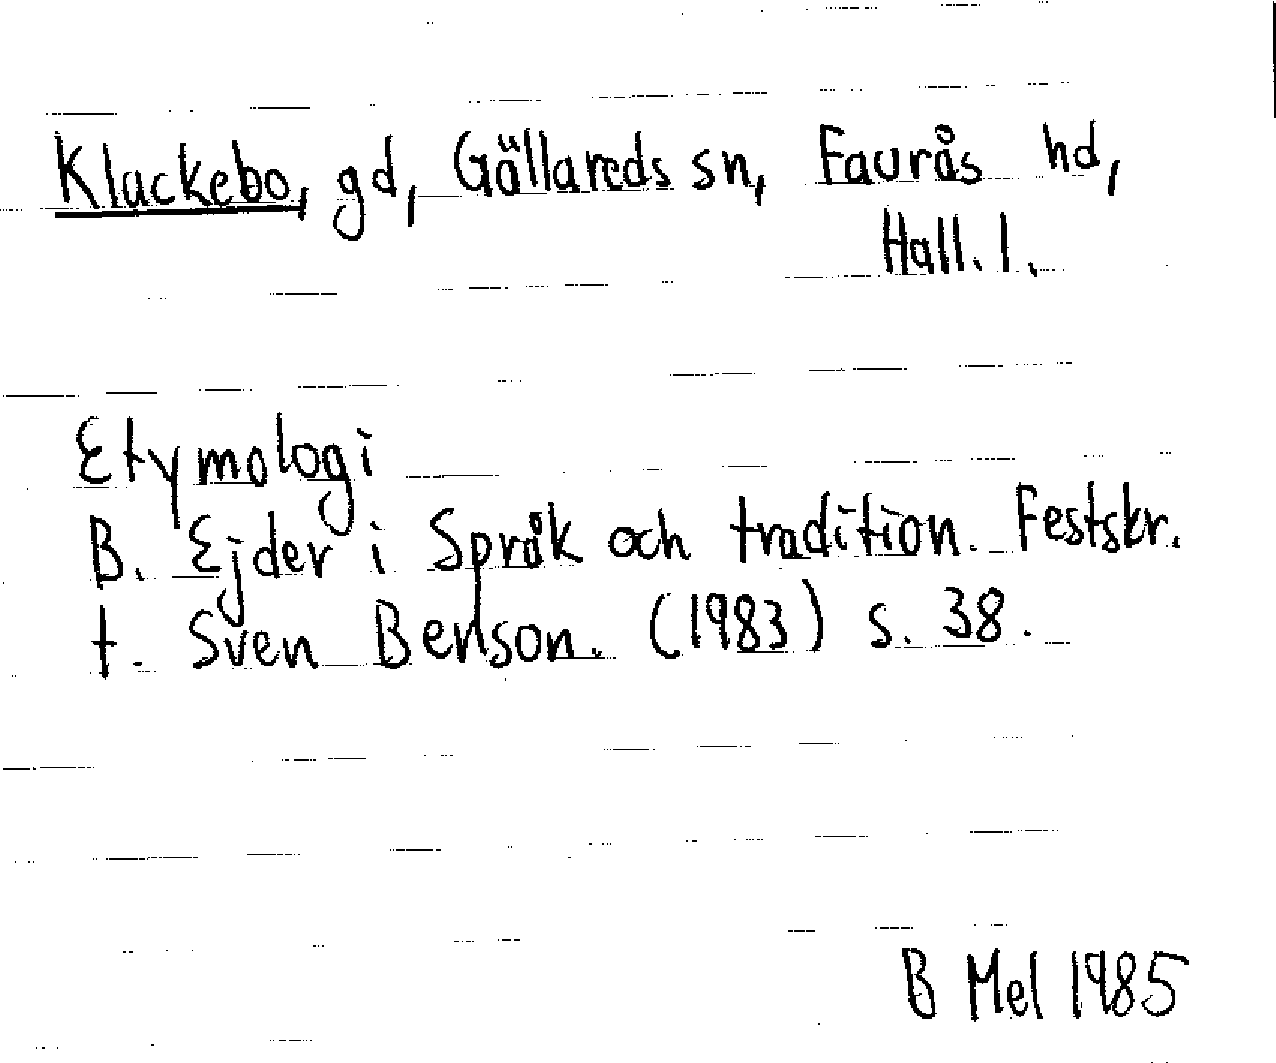 Klackebo, gd, Gällareds sn, Faurås hd,
Hall. l.
Etymologi
B. Ejder i Språk och tradition. Festskr.
t. Sven Benson. (1983) s. 38.
B Mel 1985